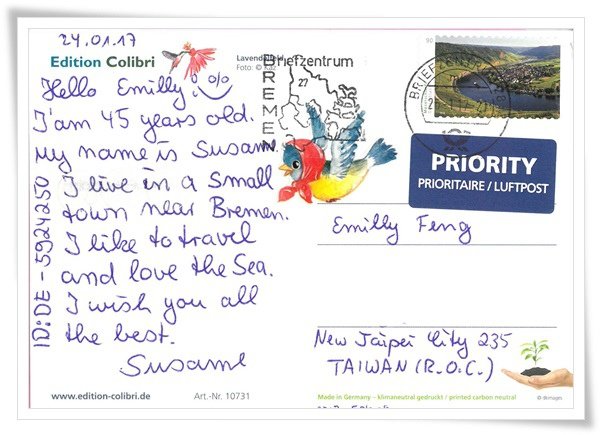 24.01.17
Edition Colibri
Lavendelfeld
Foto: © Kaz
Hello Emilly!
I'am 45 years old.
My name is Susann.
I live in a small
town near Bremen.
I like to travel
and love the Sea.
I wish you all
the best.
Susann
ID:DE-5924250
www.edition-colibri.de
Art.-Nr. 10731
Briefzentrum
BREMEN
27
90
PRIORITY
PRIORITAIRE / LUFTPOST
Emilly Feng
New Taipei City 235
TAIWAN (R.O.C.)
Made in Germany – klimaneutral gedruckt / printed carbon neutral